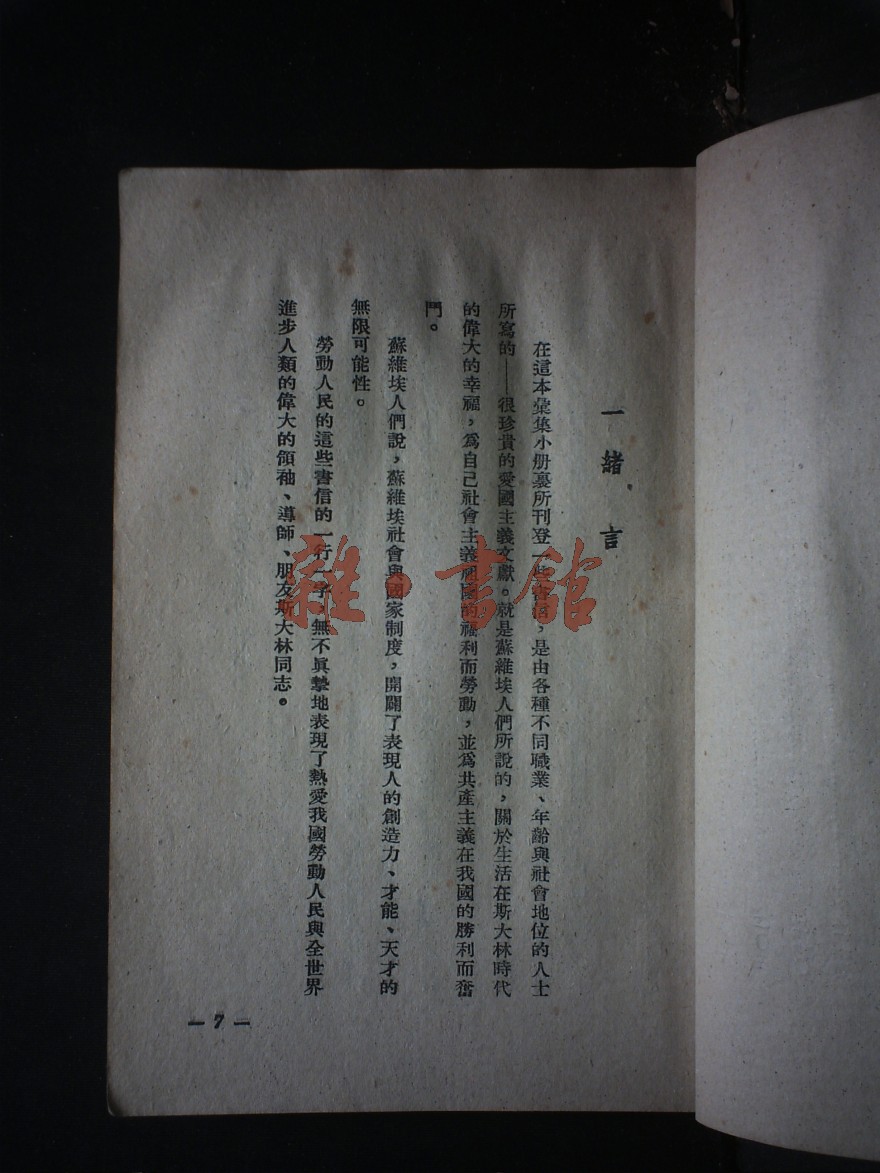 一 緒 言
在這本彙集小册裏所刊登一些書信,是由各種不同職業、年齡與社會地位的人士
所寫的——很珍貴的愛國主義文獻。就是蘇維埃人們所說的,關於生活在斯大林時代
的偉大的幸福,爲自己社會主義祖國的福利而勞動,並爲共產主義在我國的勝利而奮
鬥。
蘇維埃人們說,蘇維埃社會與國家制度,開闢了表現人的創造力、才能、天才的
無限可能性。
勞動人民的這些書信的一行一字,無不眞摯地表現了熱愛我國勞動人民與全世界
進步人類的偉大的領袖、導師、朋友斯大林同志。
— 7 —
雜·書館